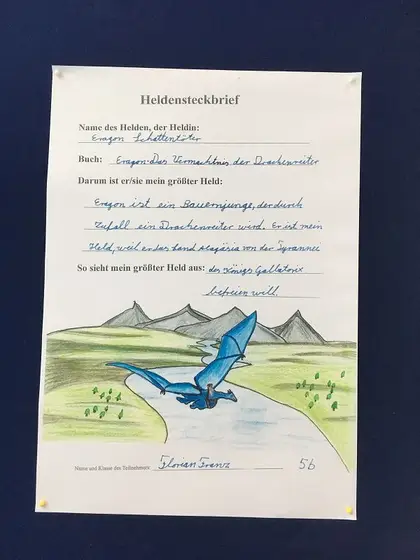 Heldensteckbrief
Name des Helden, der Heldin:
Eragon Schattentöter
Buch: Eragon-Das Vermächtnis der Drachenreiter
Darum ist er/sie mein größter Held:
Eragon ist ein Bauernjunge, der durch
Zufall ein Drachenreiter wird. Er ist mein
Held, weil er das Land Alagäsia von der Tyrannei
So sieht mein größter Held aus: des Königs Galbatorix
befreien will.
Name und Klasse des Teilnehmers Florian Franz 5b